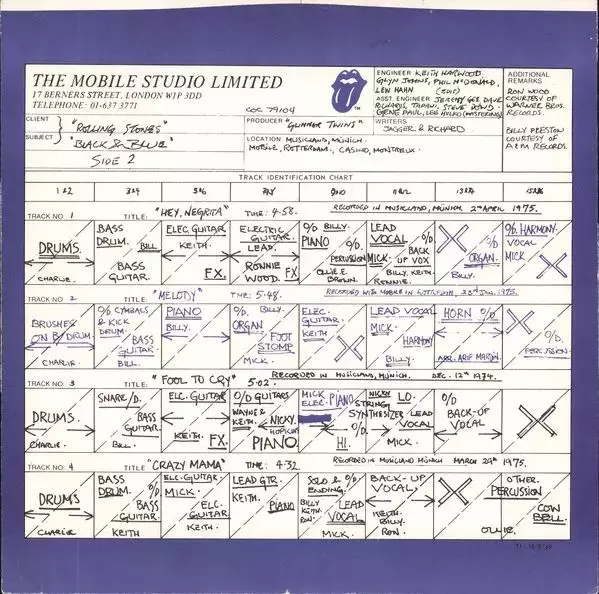 THE MOBILE STUDIO LIMITED
17 BERNERS STREET, LONDON W1P 3DD
TELEPHONE: 01-637 3771
COC 79104
ENGINEER KEITH HARWOOD,
GLYN JOHNS, PHIL McDONALD,
LEW HAHN
ASST. ENGINEER JEREMY GEE, DAVE
RICHARDS, TAPANI, STEVE DOWD,
GENE PAUL, LEE HULKO (MASTERING)
ADDITIONAL
REMARKS
RON WOOD
COURTESY OF
WARNER BROS.
RECORDS.
BILLY PRESTON
COURTESY OF
A&M RECORDS.
CLIENT "ROLLING STONES"
SUBJECT "BLACK & BLUE"
SIDE 2
PRODUCER "GLIMMER TWINS"
WRITERS JAGGER & RICHARD
LOCATION MUSICLAND, MUNICH.
MOBILE, ROTTERDAM, CASINO, MONTREUX.
TRACK IDENTIFICATION CHART
1&2 3&4 5&6 7&8 9&10 11&12 13&14 15&16
TRACK NO. 1 TITLE: "HEY, NEGRITA" TIME: 4.58. RECORDED IN MUSICLAND, MUNICH 2nd APRIL 1975.
DRUMS.
CHARLIE.
BASS DRUM. BILL
BASS GUITAR.
ELEC GUITAR
KEITH.
FX.
ELECTRIC GUITAR.
LEAD.
RONNIE WOOD. FX
O/D BILLY.
PIANO
O/D PERCUSSION
OLLIE E. BROWN.
LEAD VOCAL
MICK.
O/D BACK UP VOX
BILLY. KEITH. RONNIE.
O/D ORGAN.
BILLY.
O/D HARMONY.
VOCAL
MICK
TRACK NO. 2 TITLE: "MELODY" TIME: 5-48. RECORDED WITH MOBILE IN ROTTERDAM, 23rd JAN. 1975.
BRUSHES
ON B/DRUM.
CHARLIE
O/D CYMBALS & KICK DRUM.
BASS GUITAR.
BILL.
PIANO
BILLY.
O/D. BILLY.
ORGAN
FOOT STOMP
MICK.
ELEC. GUITAR
KEITH
LEAD VOCAL
MICK.
HARMONY
BILLY.
HORN O/D
ARR. ARIF MARDIN.
O/D.
PERCUSSION
TRACK NO. 3 TITLE: "FOOL TO CRY" 5.02. RECORDED IN MUSICLAND, MUNICH. DEC. 12th 1974.
DRUMS.
CHARLIE.
SNARE/D.
BASS GUITAR.
BILL.
ELC. GUITAR
KEITH.
FX.
O/D GUITARS
WAYNE & KEITH
NICKY. HOPKINS
PIANO.
MICK ELEC PIANO
HI.
NICKY LO.
STRING SYNTHESIZER
LEAD VOCAL
MICK.
O/D
BACK-UP
VOCAL
TRACK NO. 4 TITLE "CRAZY MAMA" TIME: 4.32 RECORDED IN MUSICLAND MUNICH MARCH 29th 1975.
DRUMS
CHARLIE
BASS DRUM.
O/D BASS GUITAR.
KEITH
ELC. GUITAR
MICK.
ELC. GUITAR
KEITH.
LEAD GTR.
KEITH.
PIANO
SOLO & ENDING.
BILLY KEITH. RON.
O/D LEAD VOCAL
MICK.
BACK-UP
VOCAL.
KEITH. BILLY. RON.
OTHER.
PERCUSSION
OLLIE.
COW BELL.